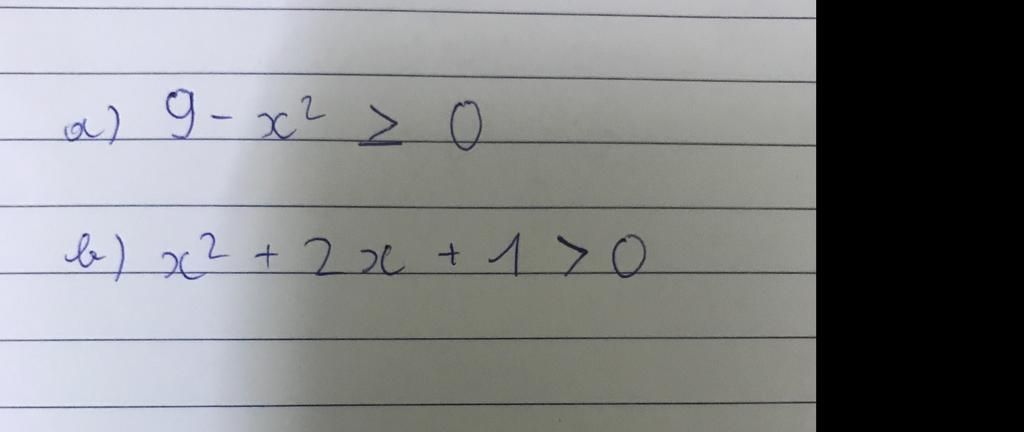 a) 9 - x² ≥ 0
b) x² + 2x + 1 > 0